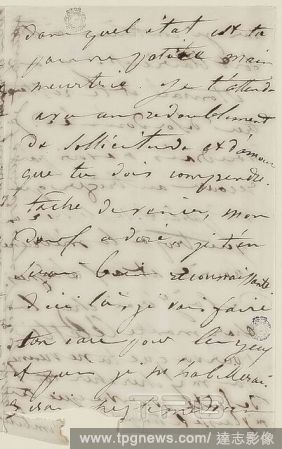 dans quel état est ta
pauvre petite main
meurtrie. Je t'attends
avec un redoublement
de sollicitude et d'amour
que tu dois comprendre.
tâche de venir, mon
adoré, je t'en
serai bien reconnaissante
D'ici là je vais faire
ton eau pour les yeux
et puis je m'habillerai
www.tpgnews.com/達志影像